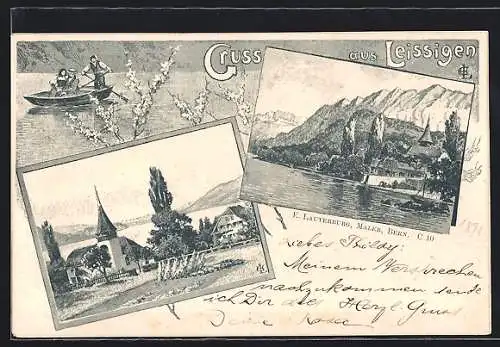 Gruss aus Leissigen
E. Lauterburg, Maler, Bern. C 10
Liebes
Meinem Versprechen
nachzukommen sende
ich Dir des Herzl. Gruss
Deine